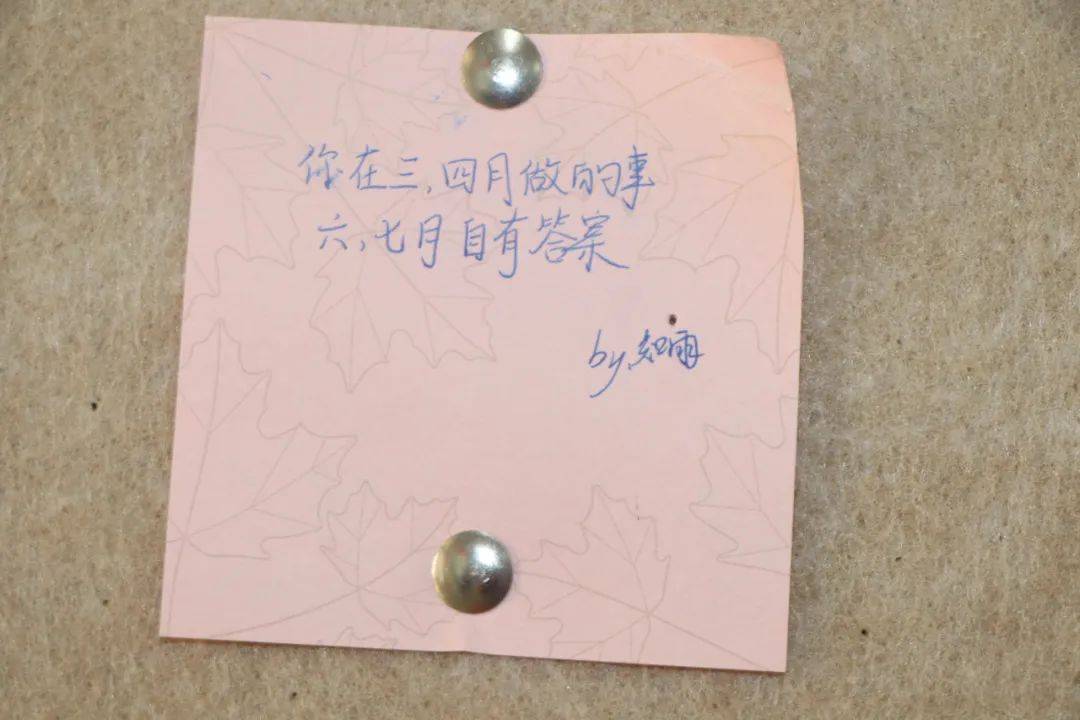 你在三、四月做的事
六、七月自有答案
by.知雨